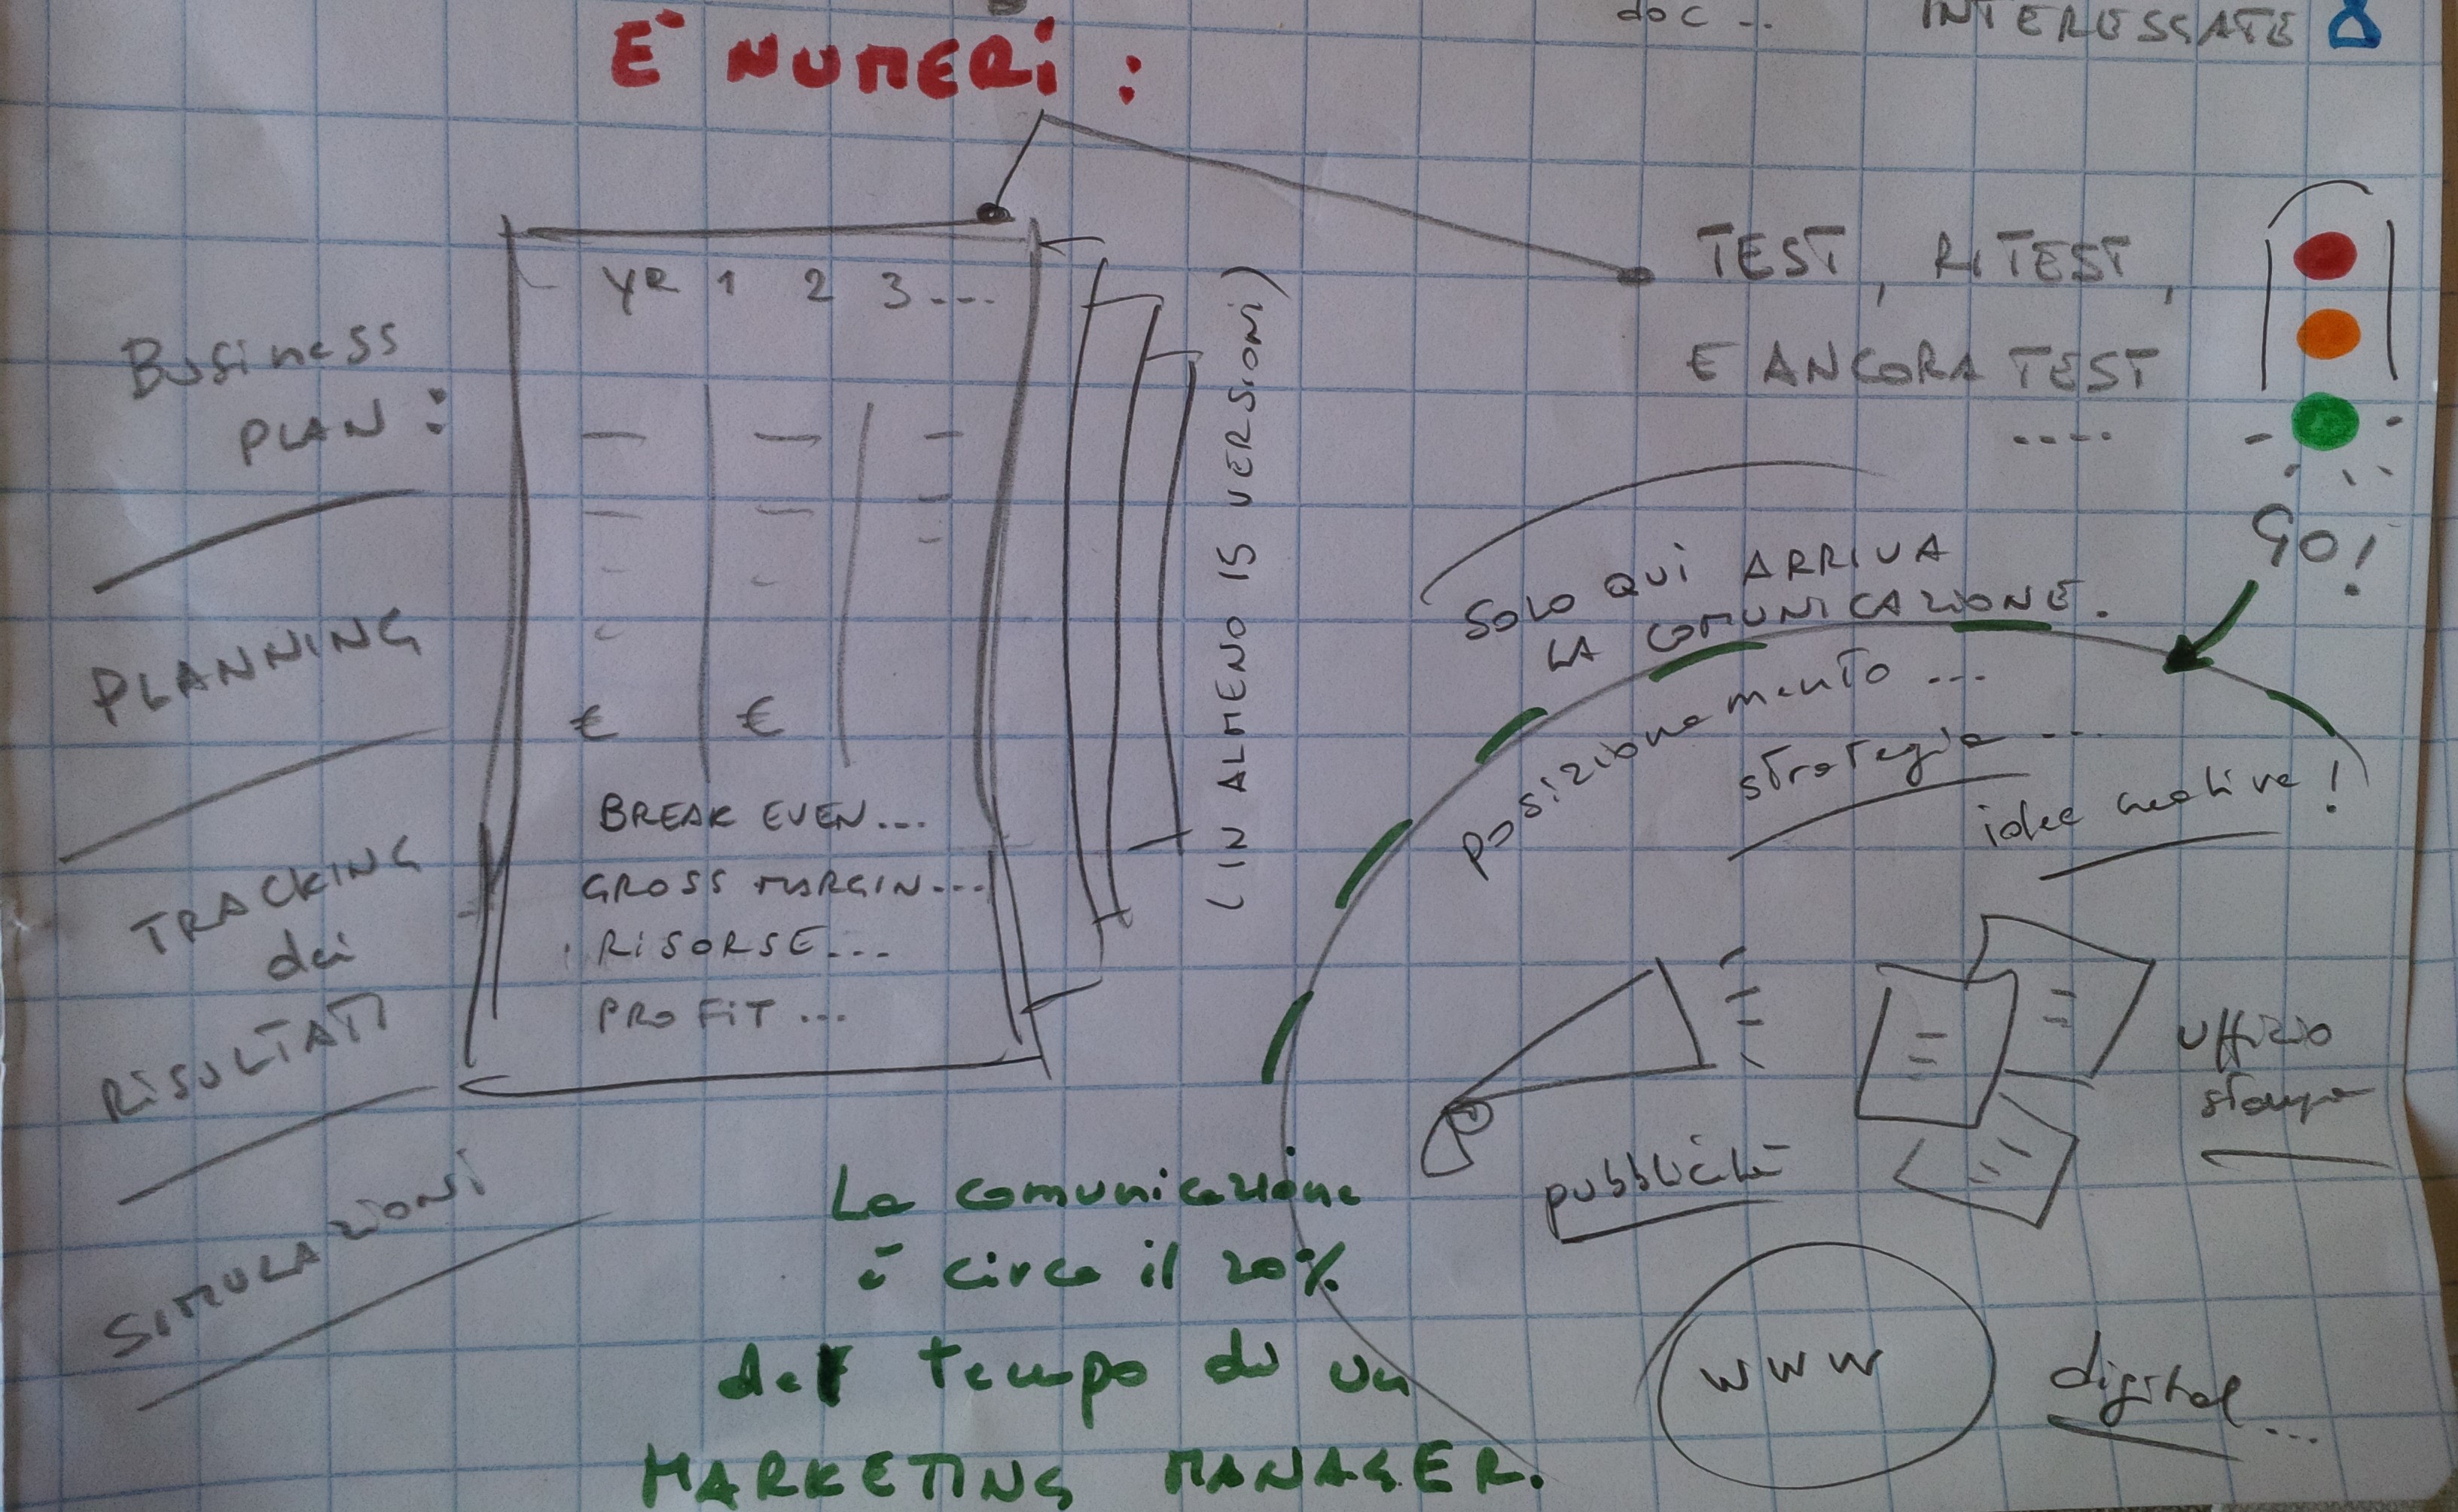 doc ..
INTERESSATE
E' NUMERI :
Business
PLAN :
PLANNING
TRACKING
dei
RISULTATI
SIMULAZIONI
YR 1 2 3 ...
€ €
BREAK EVEN...
GROSS MARGIN...
RISORSE...
PROFIT ...
(IN ALMENO 15 VERSIONI)
TEST, RITEST,
E ANCORA TEST
....
GO!
SOLO QUI ARRIVA
LA COMUNICAZIONE.
posizionamento ...
strategia ...
idee creative !
pubblicità
ufficio
stampa
www
digital...
La comunicazione
è circa il 20%
del tempo di un
MARKETING MANAGER.